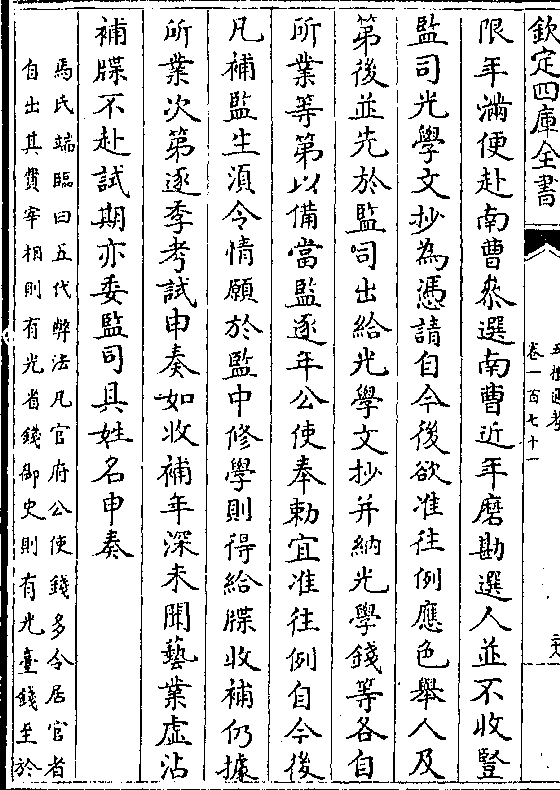 欽定四庫全書
卷一百七十一
限年滿便赴南曹叅選南曹近年磨勘選人並不收豎
監司光學文抄為憑請自今後欲准往例應色舉人及
第後並先於監司出給光學文抄并納光學錢等各自
所業等第以備當監逐年公使奉勅宜准往例自今後
凡補監生湏令情願於監中修學則得給牒收補仍據
所業次第逐季考試申奏如收補年深未聞藝業虛沾
補牒不赴試期亦委監司具姓名申奏
馬氏端臨曰五代弊法凡官府公使錢多令居官者
自出其費宰相則有光省錢御史則有光臺錢至於